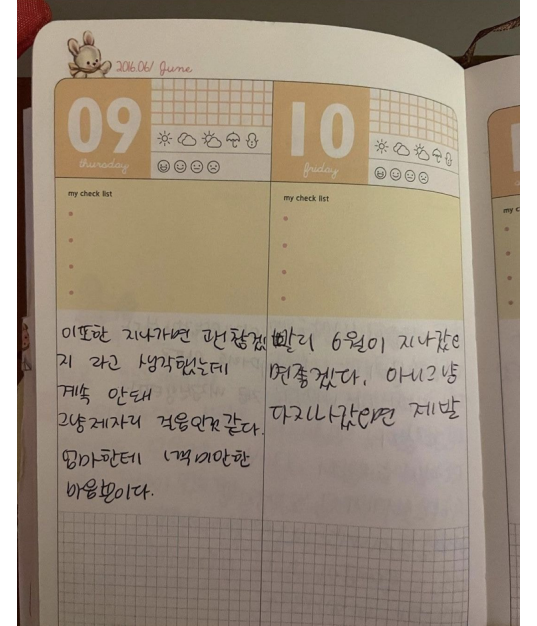 2016.06/ June
09
thursday
my check list
이또한 지나가면 괜찮겠
지 라고 생각했는데
계속 안돼
그냥 제자리 걸음인것같다.
엄마한테 너무 미안한
마음뿐이다.
10
friday
my check list
빨리 6월이 지나갔으
면좋겠다. 아니그냥
다지나갔으면 제발
my c